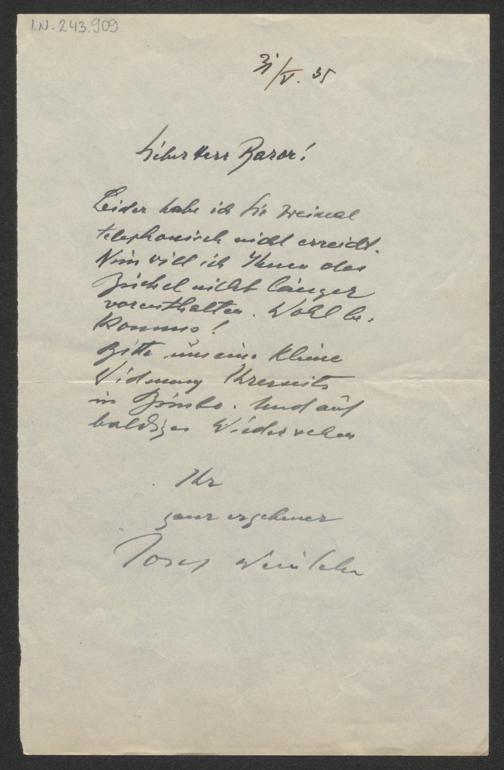 I.N. 243.909
31/V. 35
Lieber Herr
Leider habe ich Sie zweimal
telephonisch nicht erreicht.
Nun will ich Ihnen das
nicht länger
vorenthalten. Wohl be-
komms!
Bitte um eine kleine
Widmung Ihrerseits
in. Und auf
baldiges Wiedersehen
Ihr
ganz ergebener